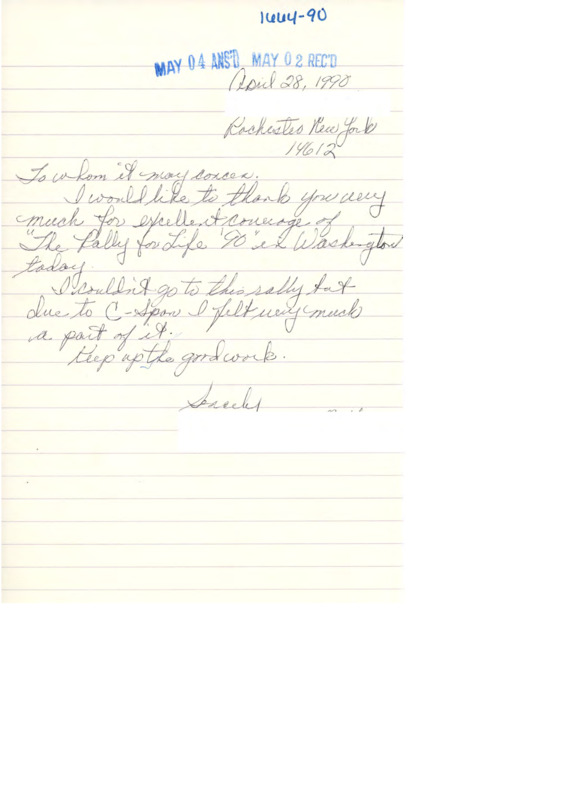 1664-90
MAY 04 ANS'D MAY 02 REC'D
April 28, 1990
Rochester New York
14612
To whom it may concer.
I would like to thank you very
much for excellent coverage of
"The Rally for Life '90" in Washington
today.
I couldn't go to this rally but
due to C-Span I felt very much
a part of it.
Keep up the good work.